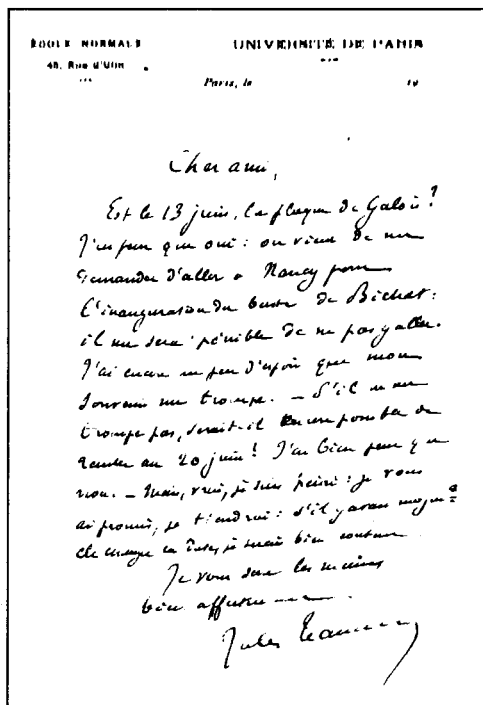 ÉCOLE NORMALE UNIVERSITÉ DE PARIS
45, Rue d'Ulm
Paris, le 19
Cher ami,
Est-ce le 13 juin, la plaque de Galois ?
J'ai peur que oui : on vient de me
demander d'aller à Nancy pour
l'inauguration du buste de Bichat :
il me sera pénible de ne pas y aller.
J'ai encore un peu d'espoir que mon
souvenir me trompe. — S'il ne me
trompe pas, serait-il encore possible de
remettre au 20 juin ! J'ai bien peur que
non. — Mais, vrai, je suis peiné : je vous
ai promis, je tiendrai : s'il y avait moyen
de changer la date, je serais bien content
Je vous serre les mains
bien affectueusement.
Jules Tannery